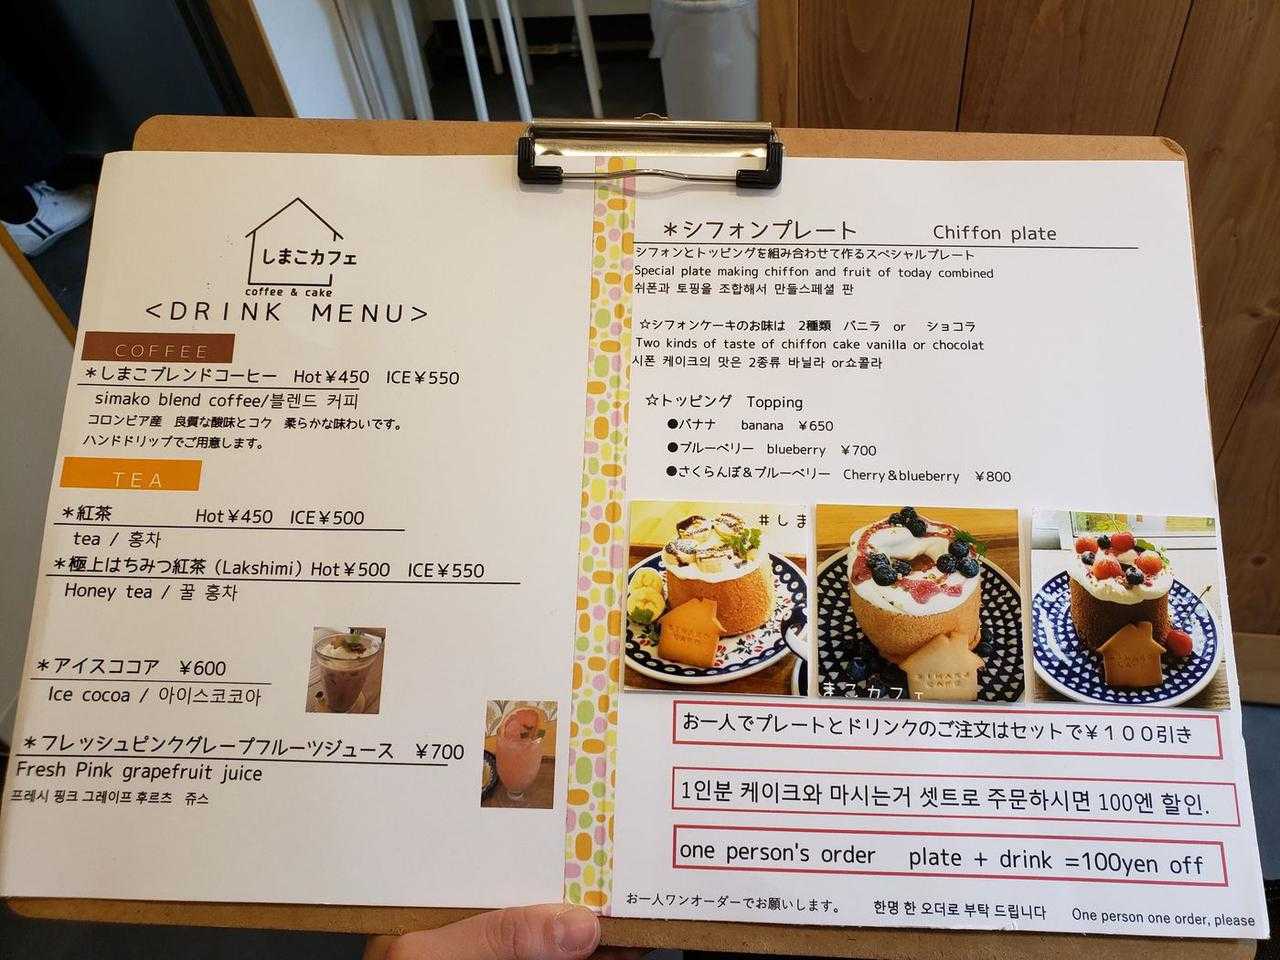 しまこカフェ
coffee & cake
<DRINK MENU>
COFFEE
＊しまこブレンドコーヒー Hot￥450 ICE￥550
simako blend coffee/블렌드 커피
コロンビア産 良質な酸味とコク 柔らかな味わいです。
ハンドドリップでご用意します。
TEA
＊紅茶 Hot￥450 ICE￥500
tea / 홍차
＊極上はちみつ紅茶（Lakshimi）Hot￥500 ICE￥550
Honey tea / 꿀 홍차
＊アイスココア ￥600
Ice cocoa / 아이스코코아
＊フレッシュピンクグレープフルーツジュース ￥700
Fresh Pink grapefruit juice
프레시 핑크 그레이프 후르츠 쥬스
＊シフォンプレート Chiffon plate
シフォンとトッピングを組み合わせて作るスペシャルプレート
Special plate making chiffon and fruit of today combined
쉬폰과 토핑을 조합해서 만들스페셜 판
☆シフォンケーキのお味は 2種類 バニラ or ショコラ
Two kinds of taste of chiffon cake vanilla or chocolat
시폰 케이크의 맛은 2종류 바닐라 or쇼콜라
☆トッピング Topping
●バナナ banana ￥650
●ブルーベリー blueberry ￥700
●さくらんぼ＆ブルーベリー Cherry＆blueberry ￥800
＃しま
まこカフェ
お一人でプレートとドリンクのご注文はセットで￥１００引き
1인분 케이크와 마시는거 셋트로 주문하시면 100엔 할인.
one person's order plate + drink =100yen off
お一人ワンオーダーでお願いします。 한명 한 오더로 부탁 드립니다 One person one order, please